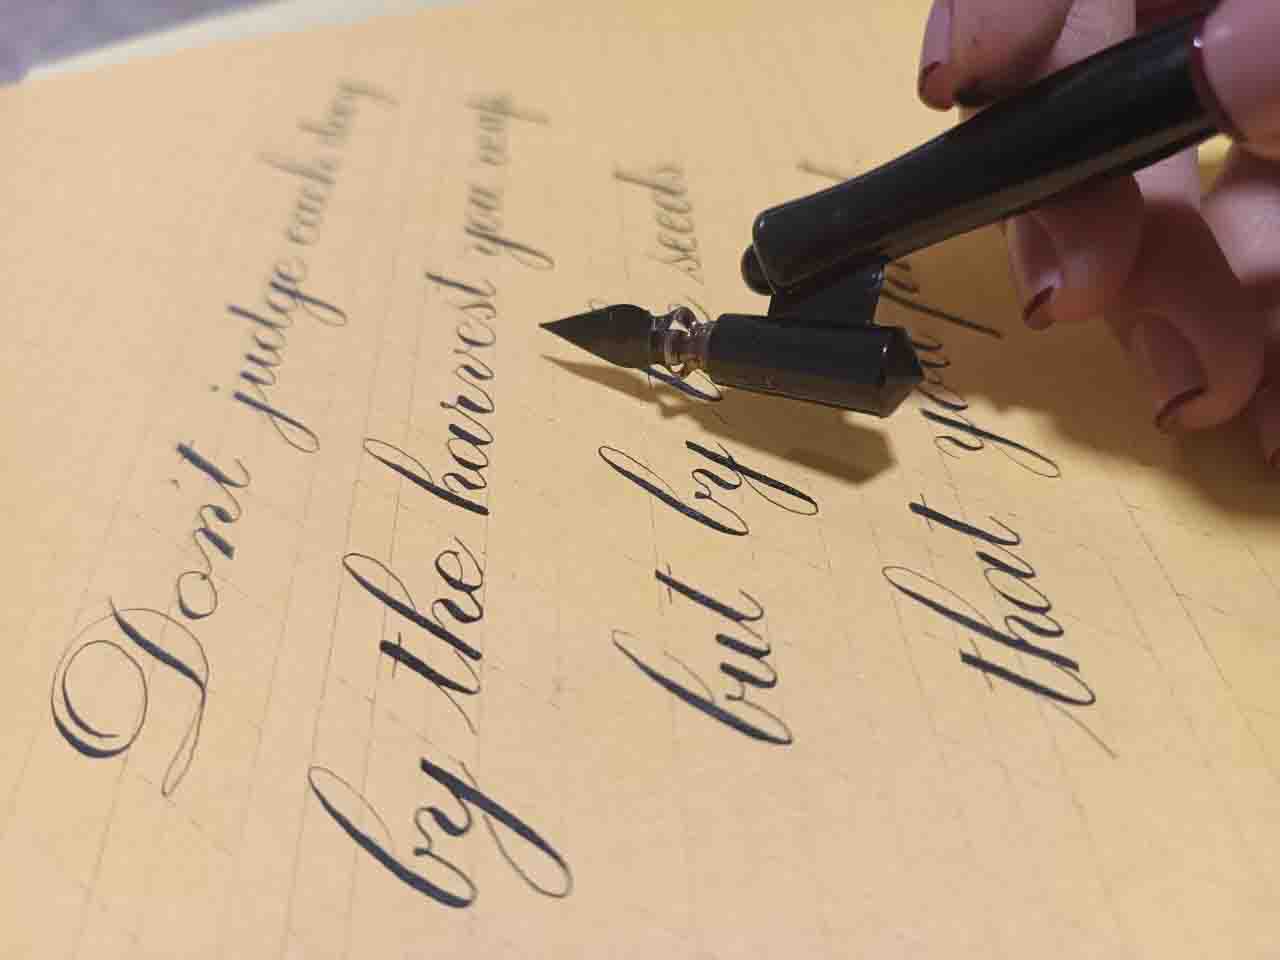 Don't judge each day
by the harvest you reap
but by seeds
that you